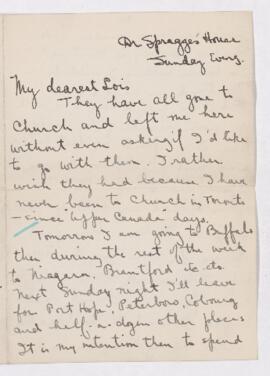 Dr Spragge's House
Sunday Evng.
My dearest Lois
They have all gone to
Church and left me here
without even asking if I'd like
to go with them. I rather
wish they had because I have
never been to Church in Toronto
- since Upper Canada days.
Tomorrow I am going to Buffalo
then during the rest of the week
to Niagara, Brantford etc etc.
Next Sunday night I'll leave
for Port Hope, Peterboro, Cobourg
and half-a-dozen other places
It is my intention then to spend